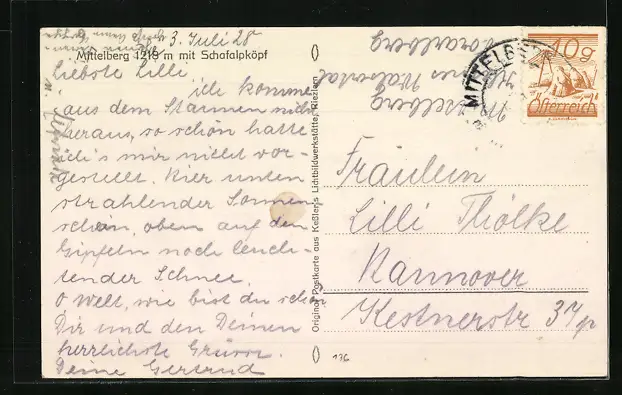 3. Juli 28
Mittelberg 1218 m mit Schafalpköpf
Liebste Lilli,
ich komme
aus dem Staunen nicht
heraus, so schön hatte
ich's mir nicht vor-
gestellt. Hier unten
strahlender Sonnen
schein, oben auf den
Gipfeln noch leuch-
tender Schnee.
O Welt, wie bist du schön
Dir und den Deinen
herzlichste Grüsse.
Deine Gertrud
Original Postkarte aus Keßler's Lichtbildwerkstätte, Riezlern
Mittelberg
Walsertal
Vorarlberg
MITTELBERG
40 g
Österreich
Fräulein
Lilli Thölke
Hannover
Kestnerstr 37
176